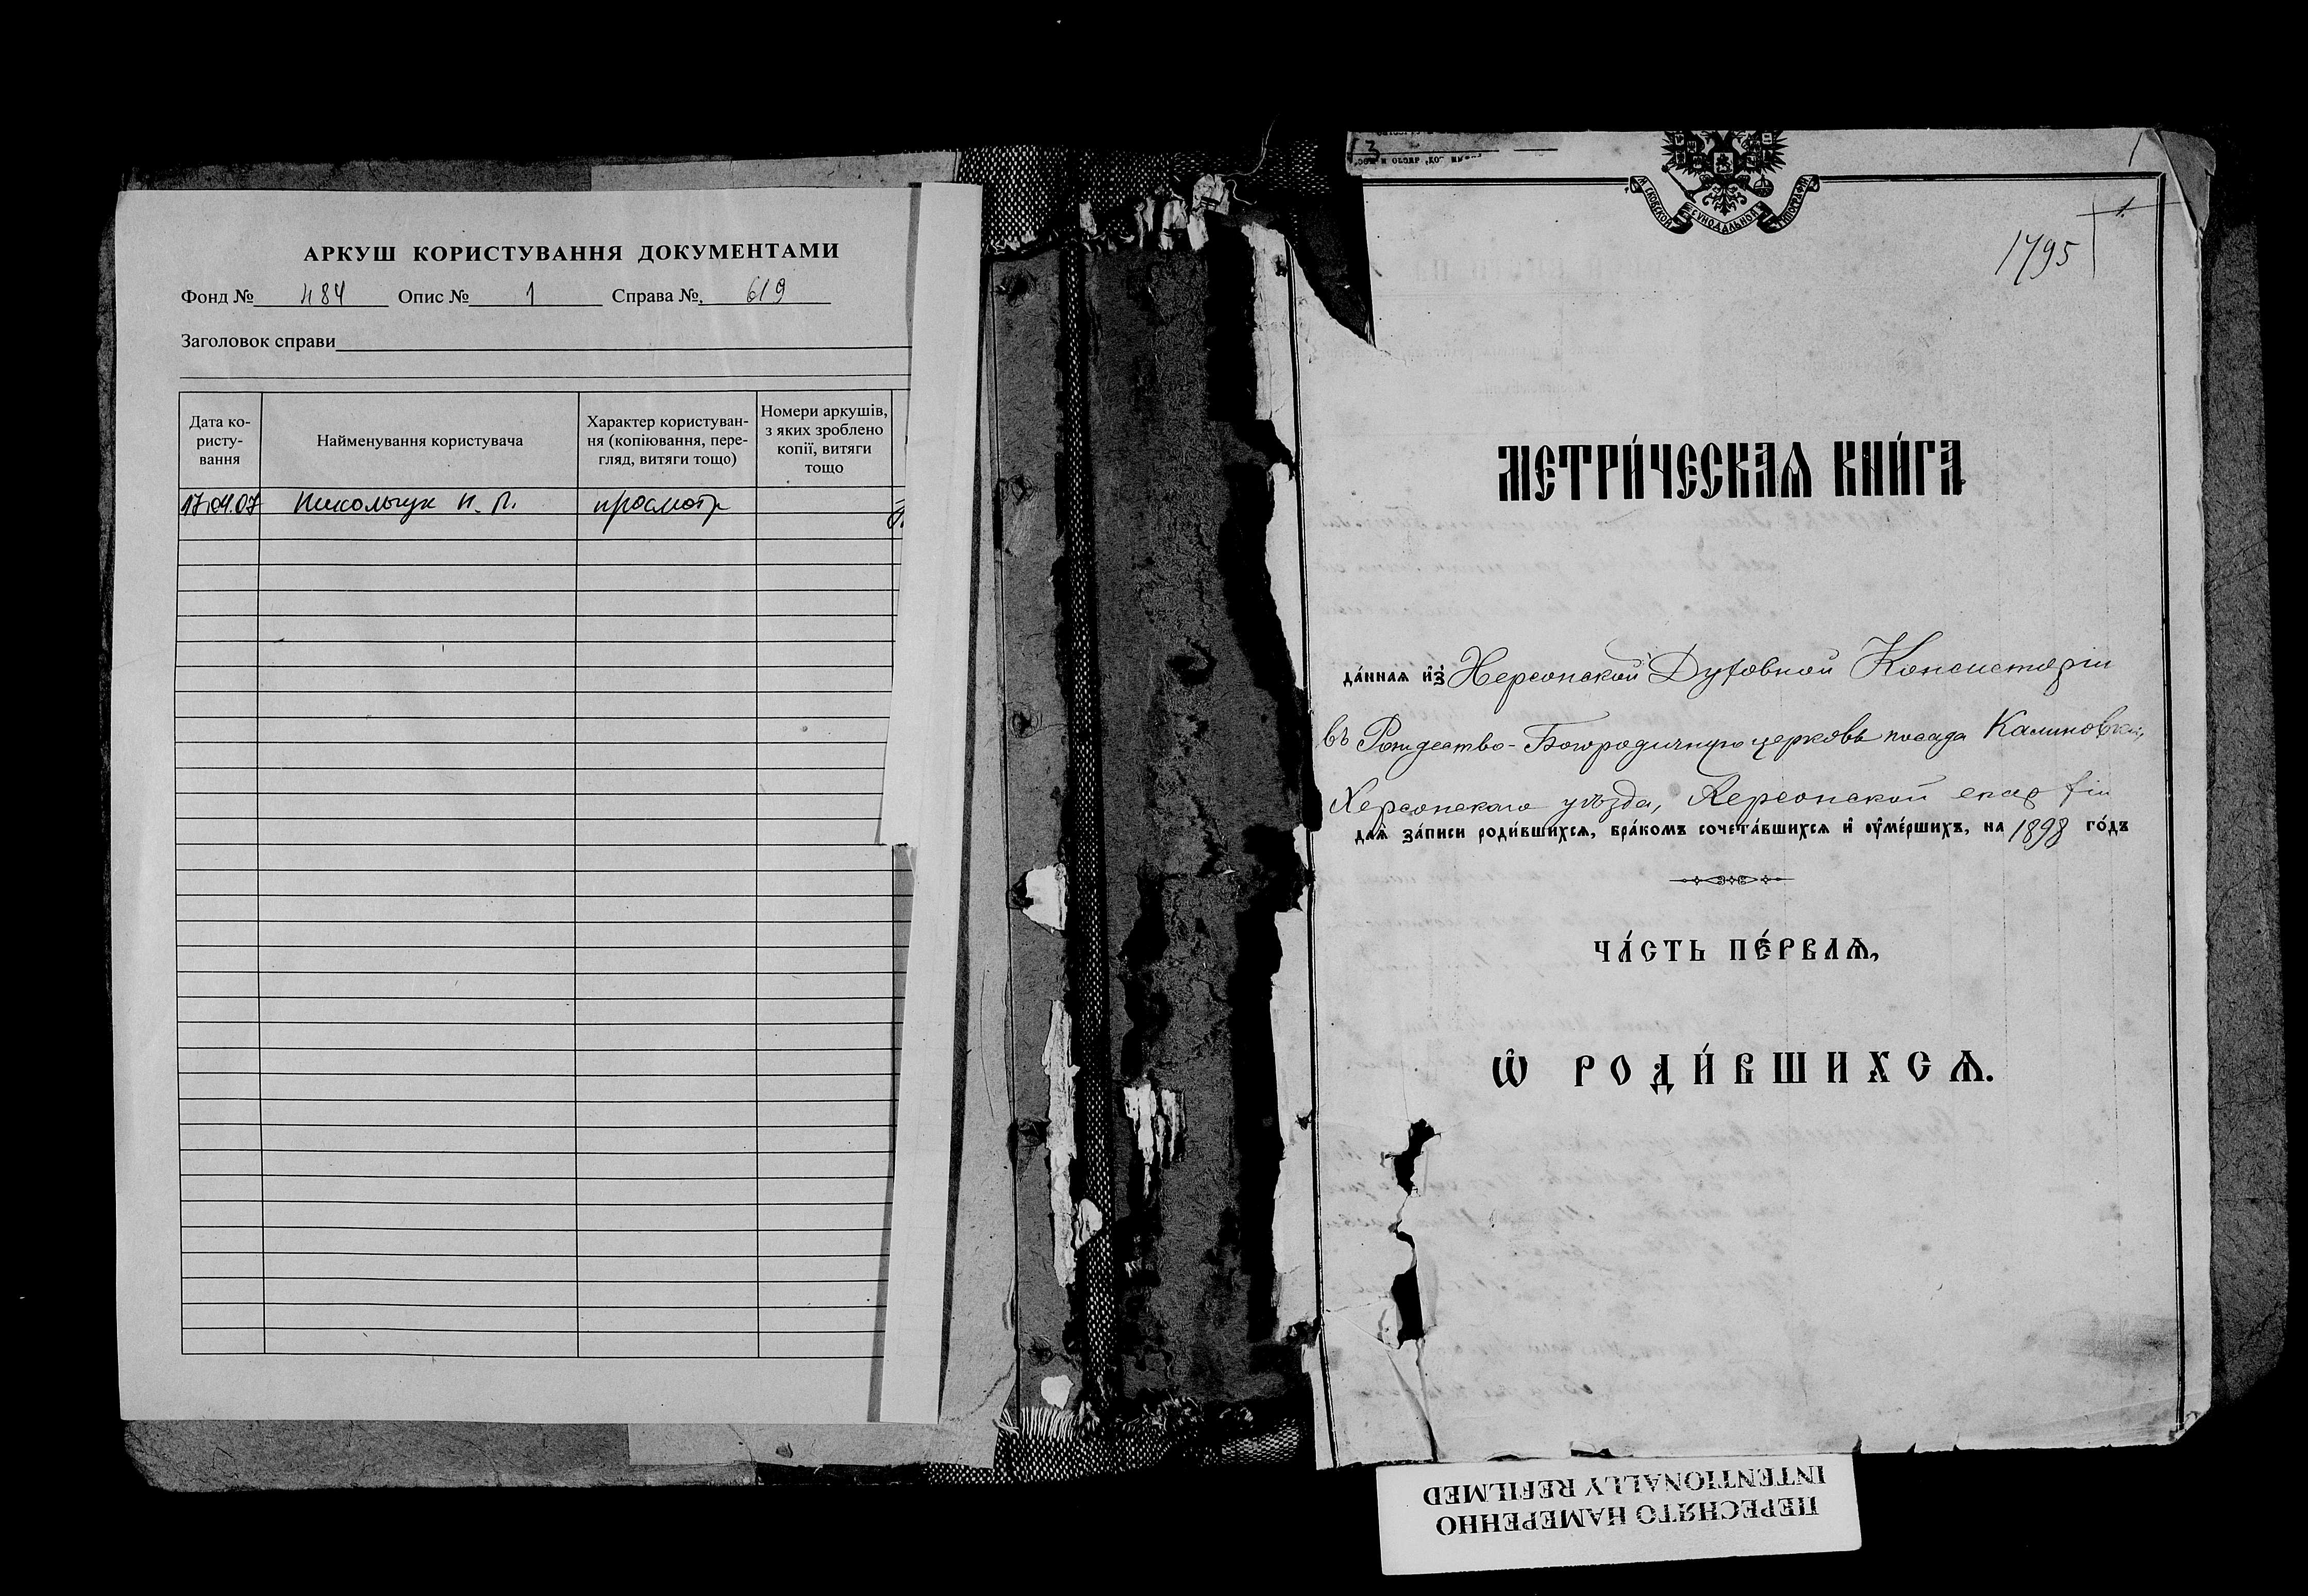 АРКУШ КОРИСТУВАННЯ ДОКУМЕНТАМИ
Фонд № 484 Опис № 1 Справа № 619
Заголовок справи
Дата ко-
ристу-
вання
Найменування користувача
Характер користуван-
ня (копіювання, пере-
гляд, витяги тощо)
Номери аркушів,
з яких зроблено
копії, витяги
тощо
17.04.07 Никольчук Н. П. просмотр
3
1
1.
1795
МЕТРИ́ЧЕСКАѦ КНИ́ГА
да́ннаѧ и҆з̾ Херсонской Духовной Консисторіи
въ Рождество-Богородичную церковь посада Калиновки,
Херсонского уѣзда, Херсонской епар хіи
длѧ за́писи роди́вшихсѧ, бра́комъ сочета́вшихсѧ и҆ ᲂу҆ме́ршихъ, на 1898 го́дъ
ЧА́СТЬ ПЕ́РВАѦ,
Ѽ РОДИ́ВШИХСѦ.
ПЕРЕСНЯТО НАМЕРЕННО
INTENTIONALLY REFILMED